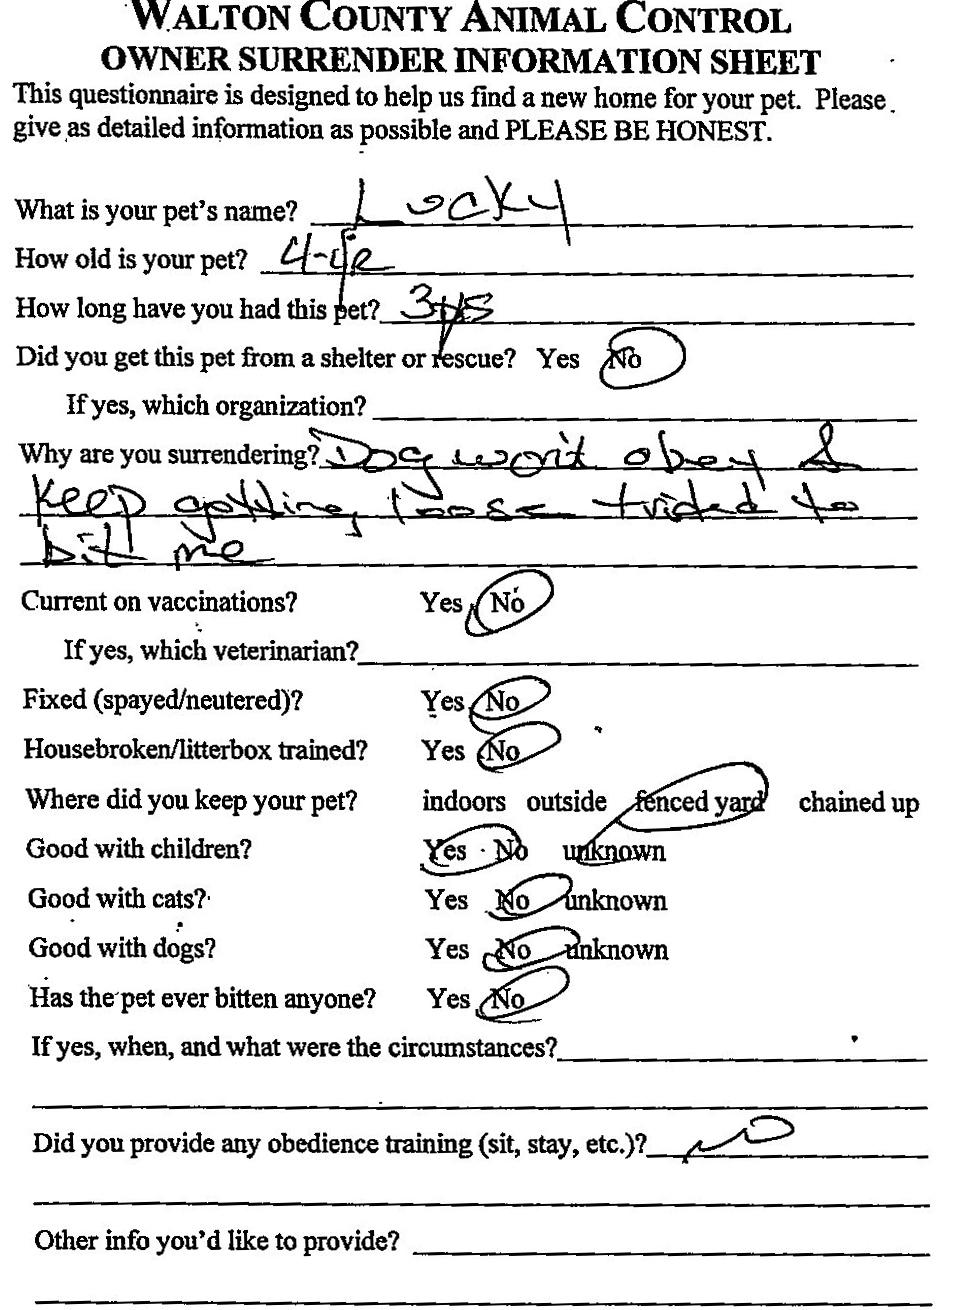 WALTON COUNTY ANIMAL CONTROL
OWNER SURRENDER INFORMATION SHEET
This questionnaire is designed to help us find a new home for your pet. Please
give as detailed information as possible and PLEASE BE HONEST.
What is your pet's name? Locky
How old is your pet? 4-
How long have you had this pet? 3
Did you get this pet from a shelter or rescue? Yes No
If yes, which organization?
Why are you surrendering? Dog won't obey &
Keep getting loose trided to
bit me
Current on vaccinations? Yes No
If yes, which veterinarian?
Fixed (spayed/neutered)? Yes No
Housebroken/litterbox trained? Yes No
Where did you keep your pet? indoors outside fenced yard chained up
Good with children? Yes No unknown
Good with cats? Yes No unknown
Good with dogs? Yes No unknown
Has the pet ever bitten anyone? Yes No
If yes, when, and what were the circumstances?
Did you provide any obedience training (sit, stay, etc.)? no
Other info you'd like to provide?